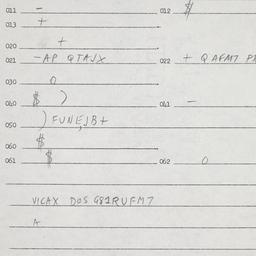 011 - 012 $
013 +
020 +
021 -AP QTAJX 022 + QAFM7 PA
030 0
040 $ ) 041 -
050 ) FUNE,JB+
060 $
061 $ 062 0
VICAX DOS G81RUFM7
A